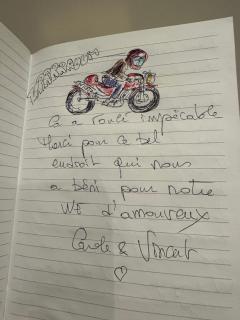 On a roulé impécable
Merci pour ce bel
endroit qui nous
a béni pour notre
WE d'amoureux
Carole & Vincent